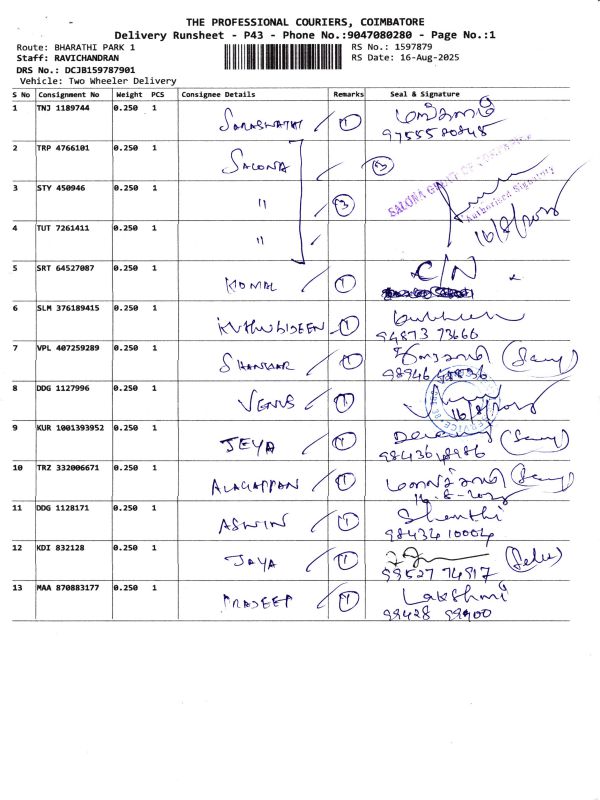 THE PROFESSIONAL COURIERS, COIMBATORE
Delivery Runsheet - P43 - Phone No.:9047080280 - Page No.:1
Route: BHARATHI PARK 1 RS No.: 1597879
Staff: RAVICHANDRAN RS Date: 16-Aug-2025
DRS No.: DCJB159787901
Vehicle: Two Wheeler Delivery
S No Consignment No Weight PCS Consignee Details Remarks Seal & Signature
1 TNJ 1189744 0.250 1 SARASWATHI 1
9755580845
2 TRP 4766101 0.250 1 SALONA 3
3 STY 450946 0.250 1 " 3
Authorised Signatory
4 TUT 7261411 0.250 1 " 16/8/2025
5 SRT 64527087 0.250 1 KOMAL 1 C/N
6 SLM 376189415 0.250 1 KUTHUBIDEEN 1
94873 73666
7 VPL 407259289 0.250 1 SHANKAR 1
98946
8 DDG 1127996 0.250 1 VENUS 1
16/8/2025
9 KUR 1001393952 0.250 1 JEYA 1
98436 18986
10 TRZ 332006671 0.250 1 ALAGAPPAN 1
11 DDG 1128171 0.250 1 ASWIN 1 Shanthi
98434 10004
12 KDI 832128 0.250 1 JAYA 1
99527 74917
13 MAA 870883177 0.250 1 PRADEEP 1 Lakshmi
99428 99400